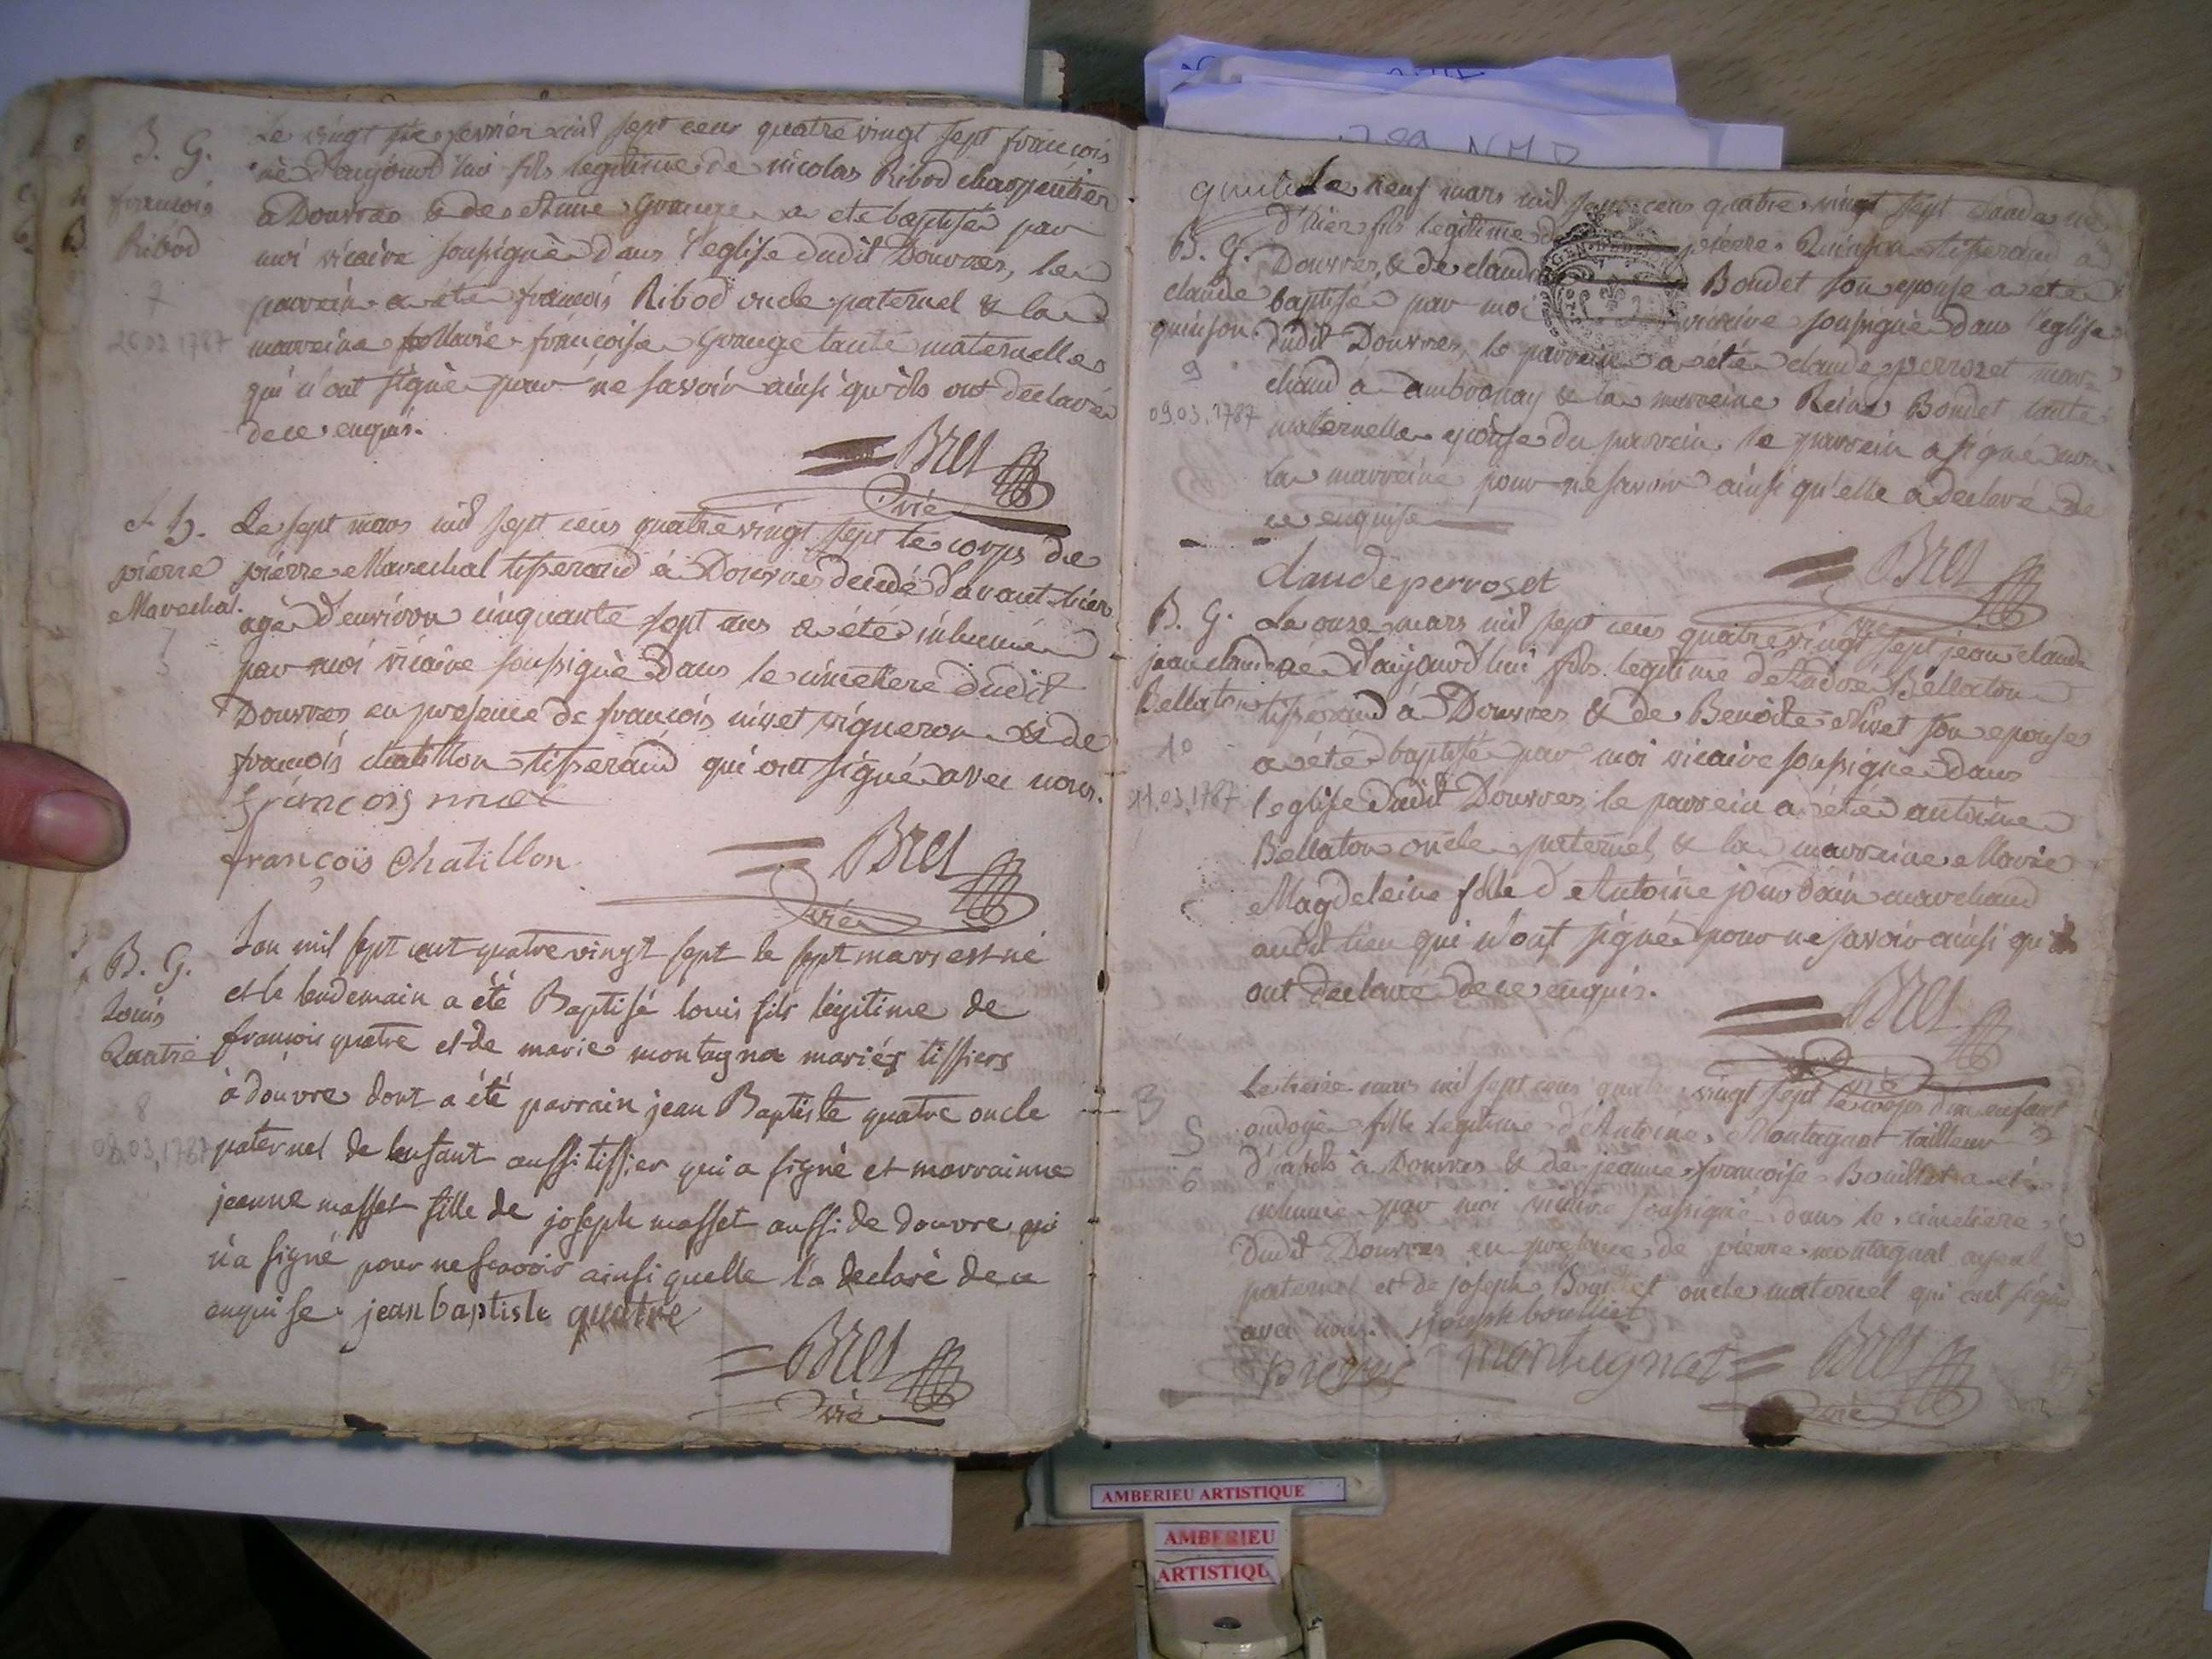 B. G.
françois
Ribod
7
26.02.1787
Le vingt six fevrier mil sept cens quatre vingt sept françois
né d'aujourd'hui fils legitime de nicolas Ribod charpentier
a Douvres & de Anne Grange a eté baptisé par
moi vicaire soussigné dans l'eglise dudit Douvres, le
parrein a été françois Ribod oncle paternel & la
marreine Marie françoise Grange tante maternelle
qui n'ont signé pour ne savoir ainsi qu'ils ont declaré
de ce enquis.
Bret
vic
pierre
Marechal.
5
Le sept mars mil sept cens quatre vingt sept le corps de
pierre Marechal tisserand à Douvres decedé d'avant-hier
agé d'environ cinquante sept ans a été inhumé
par moi vicaire soussigné dans le cimetiere dudit
Douvres en presence de françois nivet vigneron & de
françois chatillon tisserand qui ont signé avec nous.
françois nivet
françois Chatillon
Bret
vic
B. G.
Louis
Quatre
8
08.03.1787
Lan mil sept cent quatre vingt sept le sept mars est né
et le lendemain a été Baptisé louis fils légitime de
françois quatre et de marie montagna mariés tissiers
à douvre dont a été parrain jean Baptiste quatre oncle
paternel de lenfant aussi tissier qui a signé et marrainne
jeanne masset fille de joseph masset aussi de douvre qui
n'a signé pour ne scavoir ainsi quelle l'a declaré de ce
enquise. jean baptiste quatre
Bret
vic
B. G.
claude
quinson.
9
09.03.1787
Le neuf mars mil sept cens quatre vingt sept claude né
d'hier fils legitime de pierre Quinson tisserand à
Douvres, & de claudine Bondet son epouse a été
baptisé par moi vicaire soussigné dans l'eglise
dudit Douvres, le parrein a été claude perrozet mar-
chand a ambronay & la marreine Reine Bondet tante
maternelle epouse du parrein. le parrein a signé non
la marreine pour ne savoir ainsi qu'elle a declaré de
ce enquise
claude perroset
Bret
vic
B. G.
jean claude
Bellaton
10
11.03.1787
Le onze mars mil sept cens quatre vingt sept jean claude
né d'aujourd'hui fils legitime d'André Bellaton
tisserand à Douvres & de Benoite Nivet son epouse
a été baptisé par moi vicaire soussigné dans
l'eglise dudit Douvres le parrein a été antoine
Bellaton oncle paternel, & la marreine Marie
Magdeleine fille d'Antoine jourdain marchand
audit lieu qui n'ont signé pour ne savoir ainsi qu'ils
ont declaré de ce enquis.
Bret
vic
S
6
Le treize mars mil sept cens quatre vingt sept le corps d'un enfant
ondoyé fille legitime d'Antoine Montagnat tailleur
d'habits à Douvres & de jeanne françoise Bouillet a été
inhumé par moi vicaire soussigné dans le cimetiere
dudit Douvres en presence de pierre montagnat ayeul
paternel et de joseph Bouillet oncle maternel qui ont signé
avec nous. joseph bouillet
pierre montagnat
Bret
vic
AMBERIEU ARTISTIQUE
AMBERIEU
ARTISTIQU